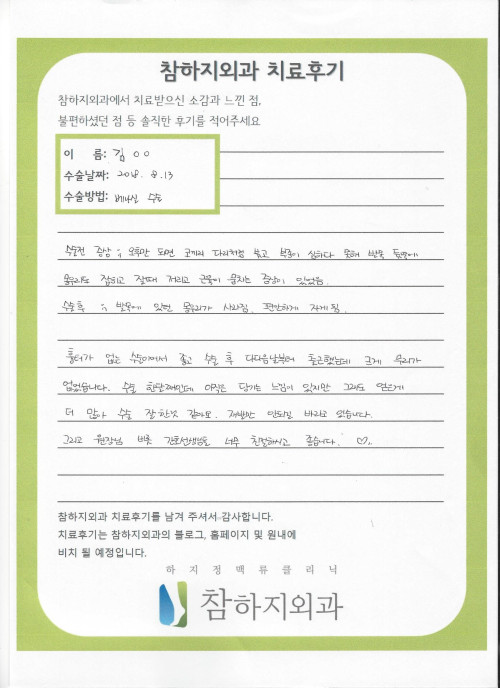 참하지외과 치료후기
참하지외과에서 치료받으신 소감과 느낀 점,
불편하셨던 점 등 솔직한 후기를 적어주세요
이 름: 김 ㅇㅇ
수술날짜: 2018. 8. 13
수술방법: 베나실 수술
수술전 증상 ; 오후만 되면 코끼리 다리처럼 붓고 부종이 심하다 못해 발목 등에
몽우리도 잡히고 잘때 저리고 근육이 뭉치는 증상이 있었음.
수술 후 ; 발목에 있던 몽우리가 사라짐. 편안하게 자게 됨.
흉터가 없는 수술이어서 좋고 수술 후 다다음날부터 출근했는데 크게 무리가
없었습니다. 수술 한달째인데 아직은 당기는 느낌이 있지만 그래도 얻은게
더 많아 수술 잘한것 같아요. 재발만 안되길 바라고 있습니다.
그리고 원장님 비롯 간호선생님들 너무 친절하시고 좋습니다. ♡
참하지외과 치료후기를 남겨 주셔서 감사합니다.
치료후기는 참하지외과의 블로그, 홈페이지 및 원내에
비치 될 예정입니다.
하지정맥류클리닉
참하지외과